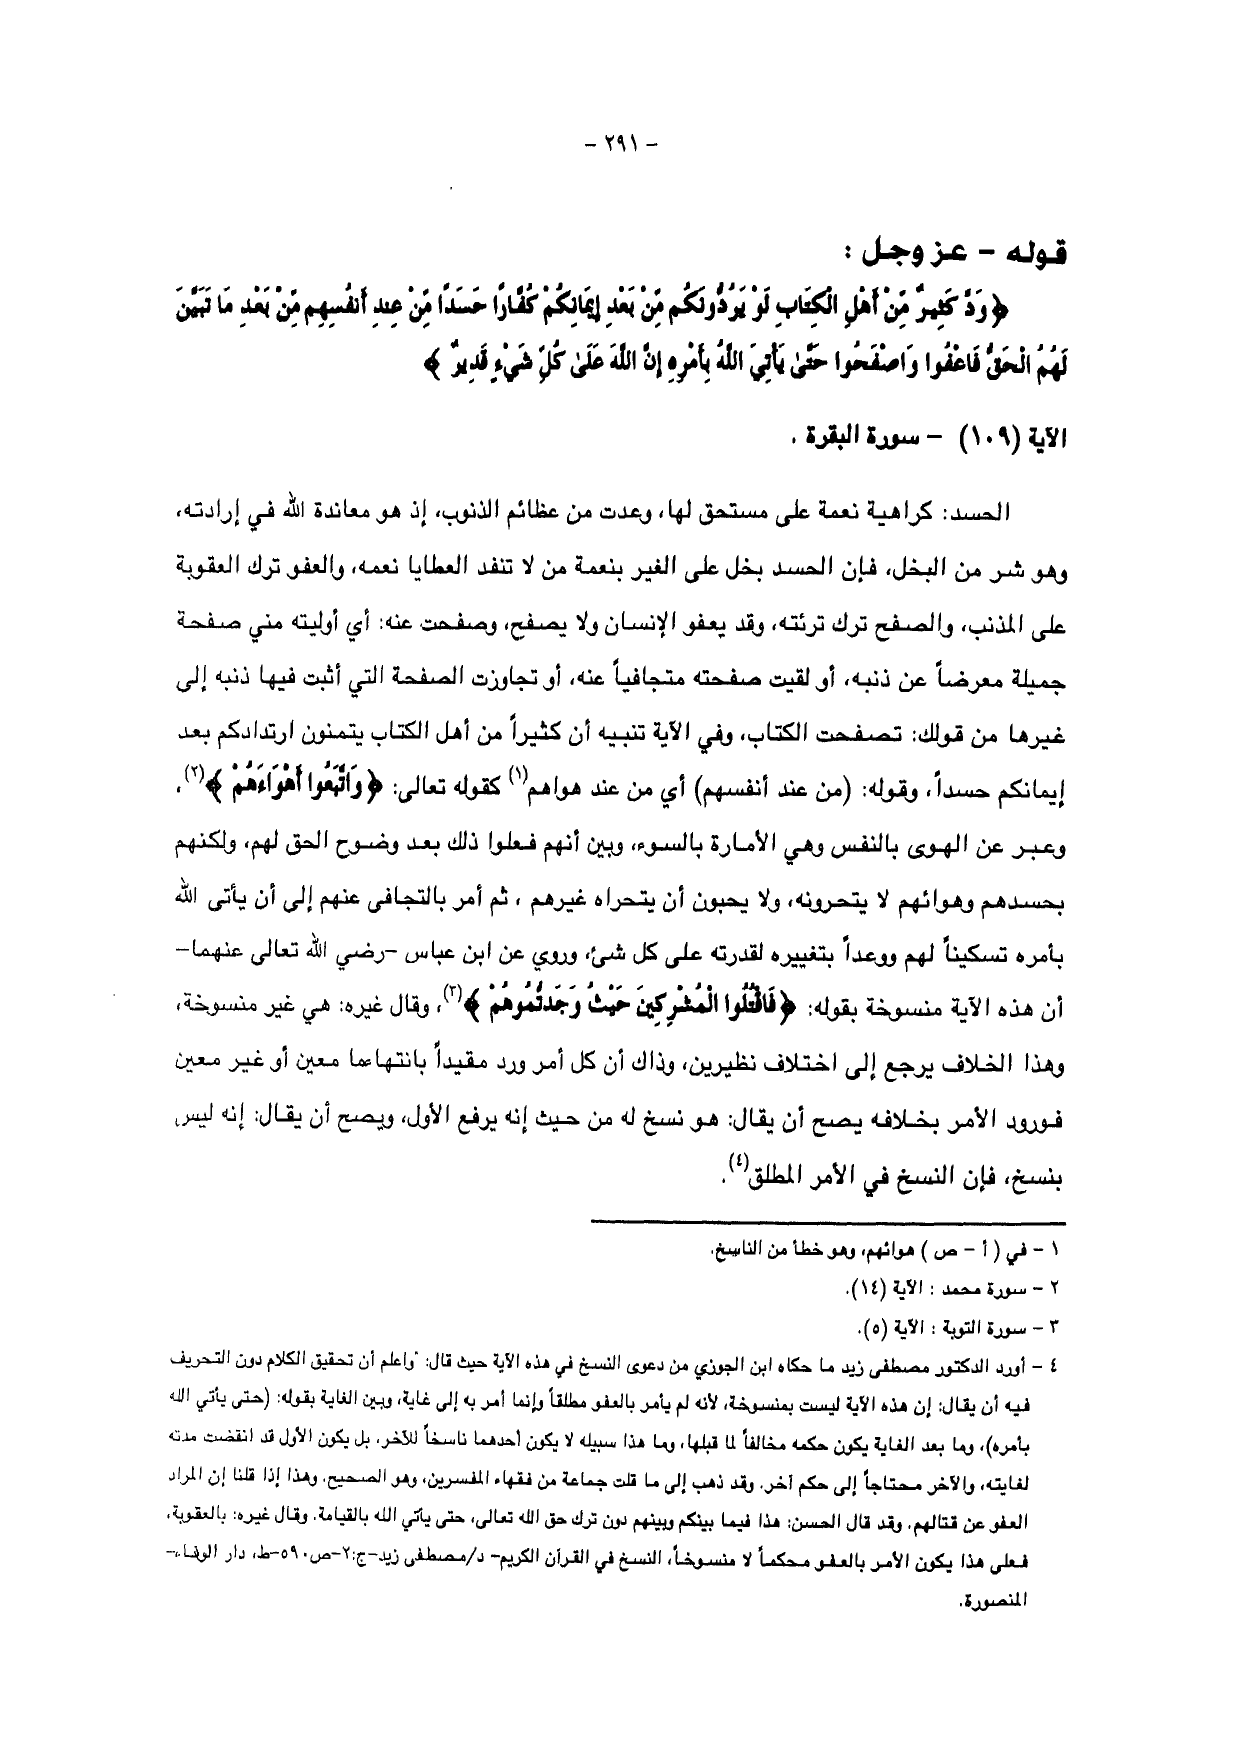 - ٢٩١ -
قوله - عز وجل :
﴿ وَدَّ كَثِيرٌ مِّنْ أَهْلِ الْكِتَابِ لَوْ يَرُدُّونَكُم مِّنْ بَعْدِ إِيمَانِكُمْ كُفَّارًا حَسَدًا مِّنْ عِندِ أَنفُسِهِم مِّنْ بَعْدِ مَا تَبَيَّنَ
لَهُمُ الْحَقُّ فَاعْفُوا وَاصْفَحُوا حَتَّىٰ يَأْتِيَ اللَّهُ بِأَمْرِهِ إِنَّ اللَّهَ عَلَىٰ كُلِّ شَيْءٍ قَدِيرٌ ﴾
الآية (١٠٩) - سورة البقرة .
الحسد: كراهية نعمة على مستحق لها، وعدت من عظائم الذنوب، إذ هو معاندة الله في إرادته،
وهو شر من البخل، فإن الحسد بخل على الغير بنعمة من لا تنفد العطايا نعمه، والعفو ترك العقوبة
على المذنب، والصفح ترك ترئته، وقد يعفو الإنسان ولا يصفح، وصفحت عنه: أي أوليته مني صفحة
جميلة معرضاً عن ذنبه، أو لقيت صفحته متجافياً عنه، أو تجاوزت الصفحة التي أثبت فيها ذنبه إلى
غيرها من قولك: تصفحت الكتاب، وفي الآية تنبيه أن كثيراً من أهل الكتاب يتمنون ارتدادكم بعد
إيمانكم حسداً، وقوله: (من عند أنفسهم) أي من عند هواهم(١) كقوله تعالى: ﴿ وَاتَّبَعُوا أَهْوَاءَهُمْ ﴾(٢)،
وعبر عن الهوى بالنفس وهي الأمارة بالسوء، وبين أنهم فعلوا ذلك بعد وضوح الحق لهم، ولكنهم
بحسدهم وهوائهم لا يتحرونه، ولا يحبون أن يتحراه غيرهم ، ثم أمر بالتجافى عنهم إلى أن يأتى الله
بأمره تسكيناً لهم ووعداً بتغييره لقدرته على كل شئ، وروي عن ابن عباس -رضي الله تعالى عنهما-
أن هذه الآية منسوخة بقوله: ﴿ فَاقْتُلُوا الْمُشْرِكِينَ حَيْثُ وَجَدتُّمُوهُمْ ﴾(٣)، وقال غيره: هي غير منسوخة،
وهذا الخلاف يرجع إلى اختلاف نظيرين، وذاك أن كل أمر ورد مقيداً بانتهاءما معين أو غير معين
فورود الأمر بخلافه يصح أن يقال: هو نسخ له من حيث إنه يرفع الأول، ويصح أن يقال: إنه ليس
بنسخ، فإن النسخ في الأمر المطلق(٤).
١ - في ( أ - ص ) هوائهم، وهو خطأ من الناسخ.
٢ - سورة محمد : الآية (١٤).
٣ - سورة التوبة : الآية (٥).
٤ - أورد الدكتور مصطفى زيد ما حكاه ابن الجوزي من دعوى النسخ في هذه الآية حيث قال: "واعلم أن تحقيق الكلام دون التحريف
فيه أن يقال: إن هذه الآية ليست بمنسوخة، لأنه لم يأمر بالعفو مطلقاً وإنما أمر به إلى غاية، وبين الغاية بقوله: (حتى يأتي الله
بأمره)، وما بعد الغاية يكون حكمه مخالفاً لما قبلها، وما هذا سبيله لا يكون أحدهما ناسخاً للآخر، بل يكون الأول قد انقضت مدته
لغايته، والآخر محتاجاً إلى حكم آخر. وقد ذهب إلى ما قلت جماعة من فقهاء المفسرين، وهو الصحيح. وهذا إذا قلنا إن المراد
العفو عن قتالهم. وقد قال الحسن: هذا فيما بينكم وبينهم دون ترك حق الله تعالى، حتى يأتي الله بالقيامة. وقال غيره: بالعقوبة،
فعلى هذا يكون الأمر بالعفو محكماً لا منسوخاً، النسخ في القرآن الكريم- د/مصطفى زيد-ج:٢-ص٥٩٠-ط، دار الوفاء-
المنصورة.